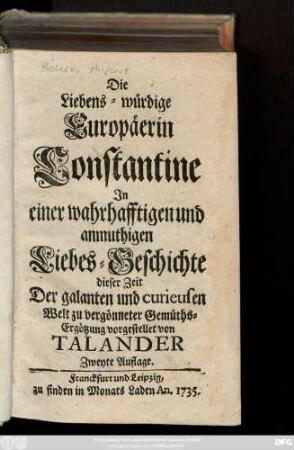 Die
Liebens-würdige
Europäerin
Constantine
In
einer wahrhafftigen und
anmuthigen
Liebes-Geschichte
dieser Zeit
Der galanten und curieusen
Welt zu vergönneter Gemüths-
Ergötzung vorgestellet von
TALANDER
Zweyte Auflage.
Franckfurt und Leipzig,
zu finden in Monats Laden An. 1735.